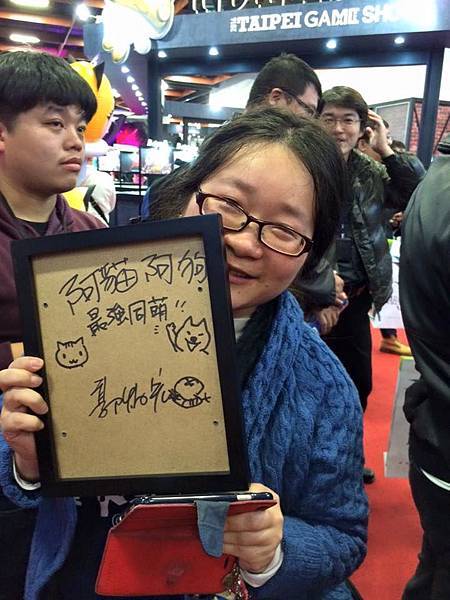 TAIPEI GAME SHO
阿貓阿狗
最強同萌!!